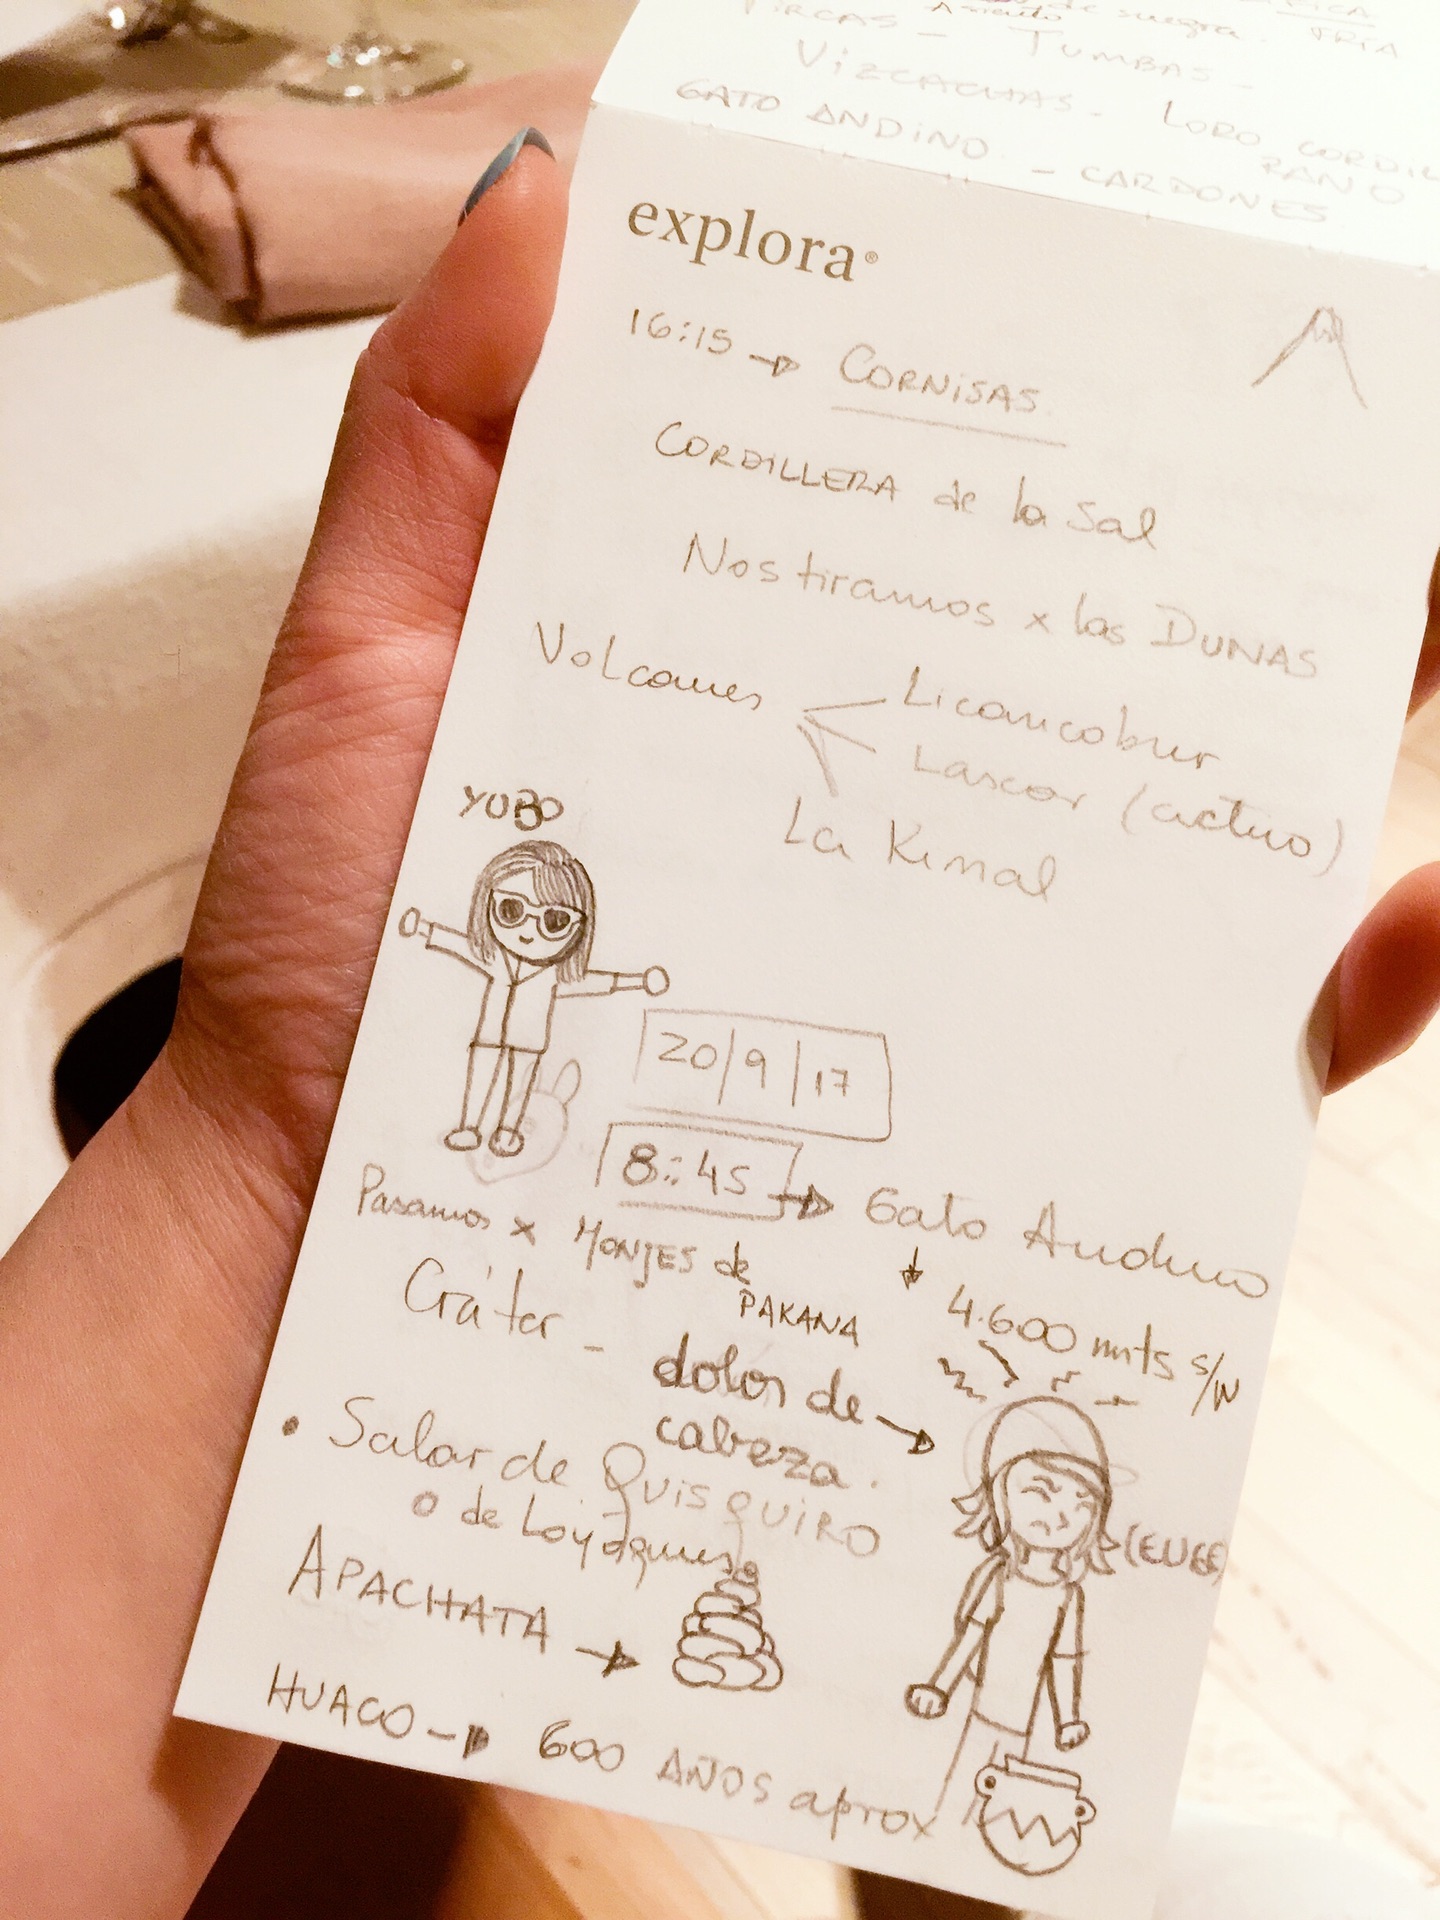 de suegra. FRÍA
Asiento
TUMBAS -
VIZCACHAS - LORO CORDIL
RANO
GATO ANDINO - CARDONES
explora®
16:15 → CORNISAS
CORDILLERA de la Sal
Nos tiramos x las DUNAS
Volcanes
Licancabur
Lascar (activo)
La Kimal
YUBO
20/9/17
8:45 → Gato Andino
Pasamos x MONJES de
PAKANA
↓ 4.600 mts s/N
Cráter - dolor de
cabeza. →
• Salar de QUISQUIRO
o de Loyoques
(EUGE)
APACHATA →
HUACO → 600 AÑOS aprox